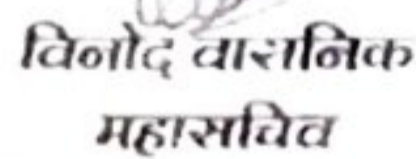 विनोद वासनिक
महासचिव